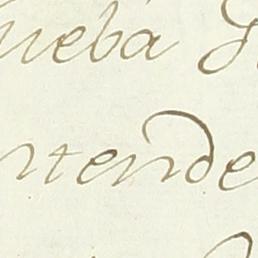 ueba
ntende